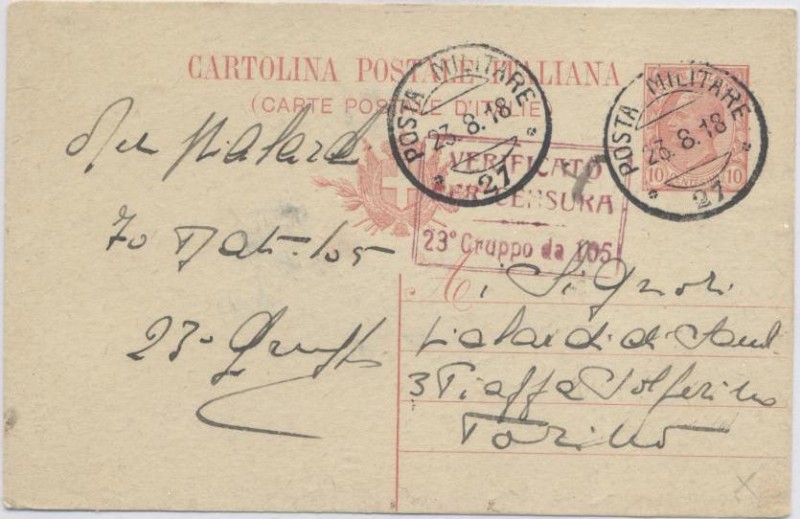 CARTOLINA POSTALE ITALIANA
(CARTE POSTALE D'ITALIE)
POSTA MILITARE
23.8.18
27
POSTA MILITARE
23.8.18
27
10 10
VERIFICATO
PER CENSURA
23° Gruppo da 105
70 Batt. 105
23° Grupp
A
Signori
3 Piazza Solferino
Torino